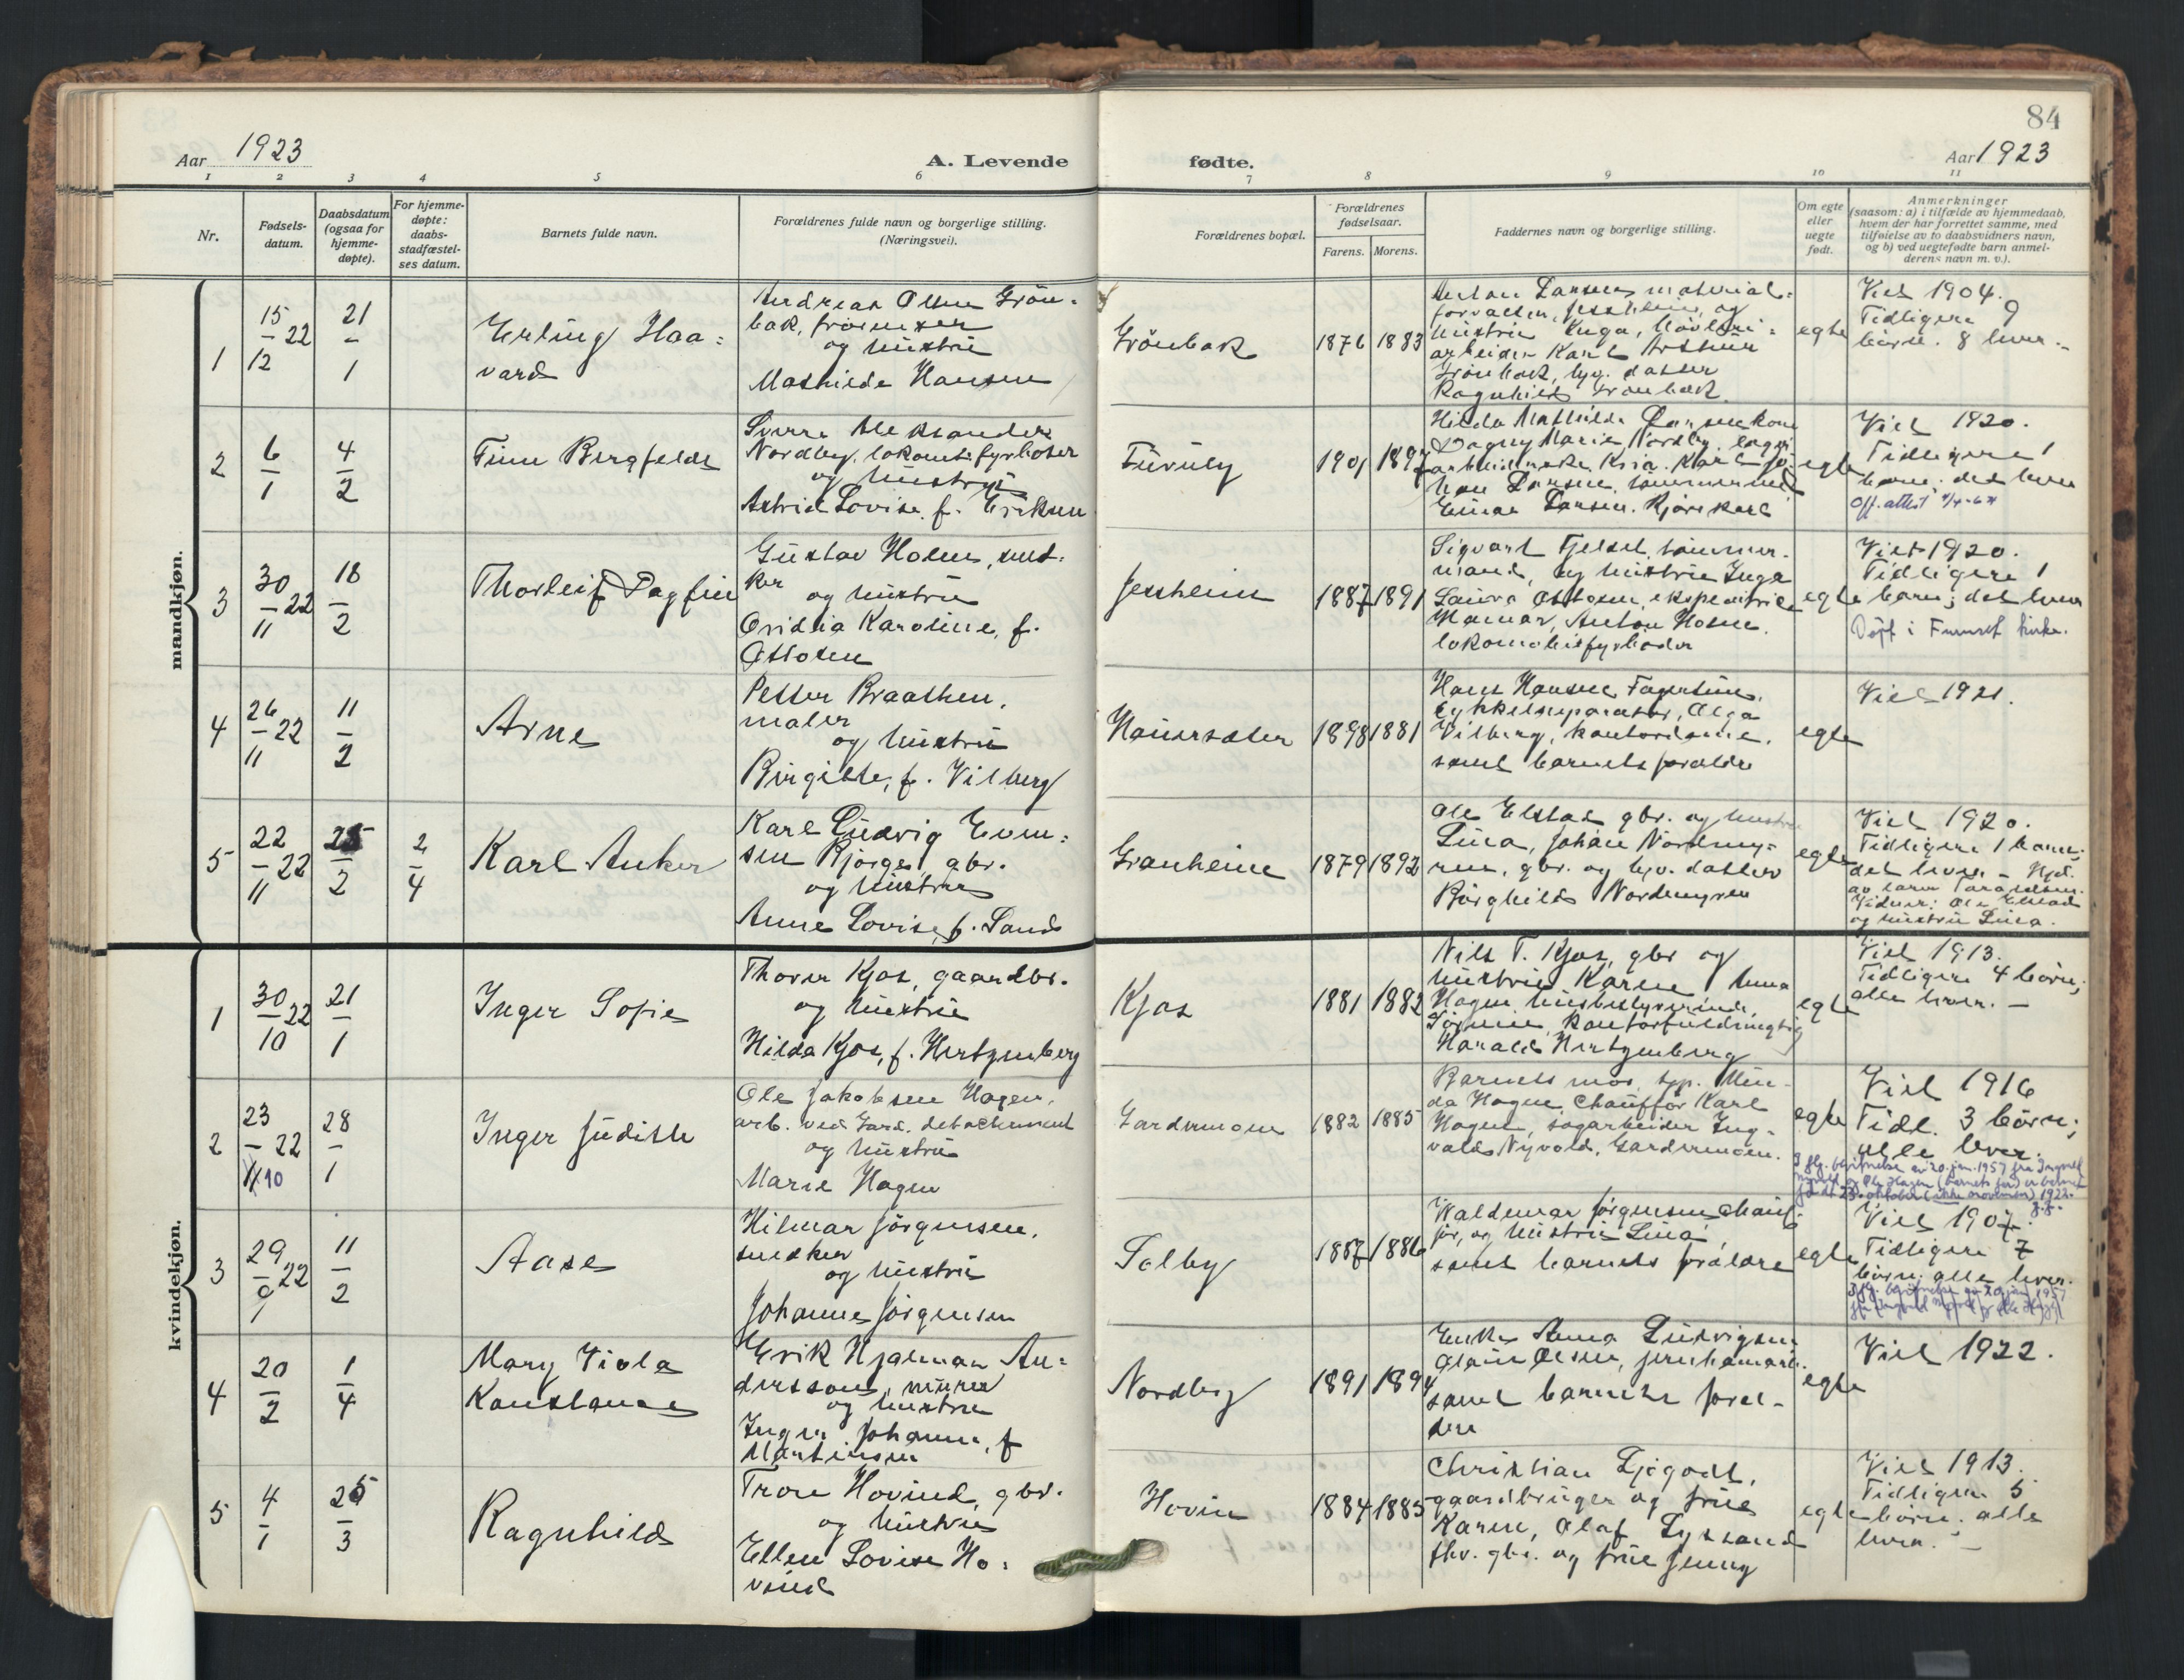 84
Aar 1923
A. Levende
fødte.
Aar 1923
1 2 3 4 5 6 7 8 9 10 11
Nr.
Fødsels-
datum.
Daabsdatum
(ogsaa for
hjemme-
døpte).
For hjemme-
døpte:
daabs-
stadfæstel-
ses datum.
Barnets fulde navn.
Forældrenes fulde navn og borgerlige stilling.
(Næringsvei).
Forældrenes bopæl.
Forældrenes
fødselsaar.
Farens. Morens.
Faddernes navn og borgerlige stilling.
Om egte
eller
uegte
født.
Anmerkninger
(saasom: a) i tilfælde av hjemmedaab,
hvem der har forrettet samme, med
tilføielse av to daabsvidners navn,
og b) ved uegtefødte barn anmel-
derens navn m. v.).
mandkjøn.
1
15/12 22
21/1
Erling Haa-
vard
Andreas Olsen Grön-
bak,
og hustru
Mathilde Hansen
Grönbak
1876 1883
Anton Larsen material-
forvalter, Jessheim, og
hustru Inga,
arbeider Karl Arthur
Grönbak, tyg. datter
Ragnhild Grönbak
egte
Viet 1904.
Tidligere 9
børn. 8 lever.
2
6/1
4/2
Finn Bergfeldt
Sverre Aleksander
Nordby, lokomotivfyrbøter
og hustru
Astrid Lovise, f. Eriksen
Furuly
1901 1897
Hilda Mathilde Larsen, kone
Dagny Marie Nordby,
arbeiderske, Kria. Karl Jo-
han Larsen, tømmermand
Einar Larsen, kjørekarl
egte
Viet 1920.
Tidligere 1
barn; det lever
Off. attest
3
30/11 22
18/2
Thorleif Dagfin
Gustav Holm, sned-
ker
og hustru
Ovidia Karoline, f.
Ottosen
Jessheim
1887 1891
Sigvart Fjeldel, tømmer-
mand, og hustru Inga
Laura Ottosen, ekspeditrice
Hamar, Anton Holm,
lokomotivfyrbøder
egte
Viet 1920.
Tidligere 1
barn; det lever
Døpt i Furuset kirke.
4
26/11 22
11/2
Arne
Petter Braathen,
maler
og hustru
Birgitte, f. Vilberg
Hauersæter
1898 1881
Hans Hansen Fagertun,
cykkelreparatør, Olga
Vilberg, kontordame,
samt barnets forældre
egte
Viet 1921.
5
22/11 22
25/2
2/4
Karl Anker
Karl Ludvig Even-
sen Bjørge, gbr.
og hustru
Anne Lovise, f. Sand
Granheim
1879 1892
Ole Elstad gbr. og hustru
Lina, Johan Nordmy-
ren, gbr. og hjv. datter
Borghild Nordmyren
egte
Viet 1920.
Tidligere 1 barn;
det lever. - Hjd.
av lærer Taraldsen.
Vidner: Ole Elstad
og hustru Lina.
kvindekjøn.
1
30/10 22
21/1
Inger Sofie
Thorer Kjos, gaardbr.
og hustru
Hilda Kjos, f. Hertzenberg
Kjos
1881 1882
Nils T. Kjos, gbr og
hustru Karen, Anna
Hagen husbestyrerinde,
kontorfuldmægtig
Harald Hertzenberg
egte
Viet 1913.
Tidligere 4 børn;
alle lever. -
2
23/11 22
10
28/1
Inger Judith
Ole Jakobsen Hagen,
arb. ved Gard. detachement
og hustru
Marie Hagen
Gardermoen
1882 1885
Barnets mor, tyg. Min-
da Hagen, Chauffør Karl
Hagen, sagarbeider Ing-
vald Nyvold, Gardermoen.
egte
Viet 1916
Tidl. 3 børn;
alle lever.
I flg. bevitnelse av 20. jan. 1957 fra Ingvald
Nyvold og Ole Hagen (barnets far) er barnet
født 23. oktober (ikke november) 1922.
3
29/9 22
1
11/2
Aase
Hilmar Jörgensen,
snedker
og hustru
Johanne Jörgensen
Solby
1887 1886
Waldemar Jörgensen, chauf-
før, og hustru Lina,
samt barnets forældre
egte
Viet 1907.
Tidligere 7
børn; alle lever.
I flg. bevitnelse av 20 jan 1957
fra Ingvald Nyvold og Ole Hagen
4
20/2
1/4
Mary Viola
Konstance
Erik Hjalmar An-
dersson, murer
og hustru
Inger Johanne, f
Martinsen
Nordberg
1891 1894
Enke Anna Ludvigsen,
Olaus Olsen, jernbanearb.
samt barnets forel-
dre
egte
Viet 1922.
5
4/1
25/3
Ragnhild
Tron Hovind, gbr.
og hustru
Ellen Lovise Ho-
vind
Hovin
1884 1885
Christian Ljögodt,
gaardbruger og frue
Karen, Olaf Lysand
fhv. gbr. og frue Jenny
egte
Viet 1913.
Tidligere 5
børn; alle
lever. -